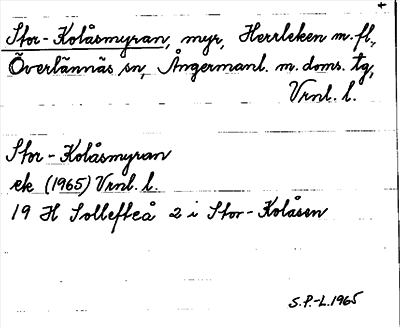 +
Stor-Kolåsmyran, myr, Herrleken m.fl.,
Överlännäs sn, Ångermanl. m. doms. tg,
Vrnl. l.
Stor-Kolåsmyran
ek (1965) Vrnl. l.
19 H Sollefteå 2 i Stor-Kolåsen
S.P.-L. 1965